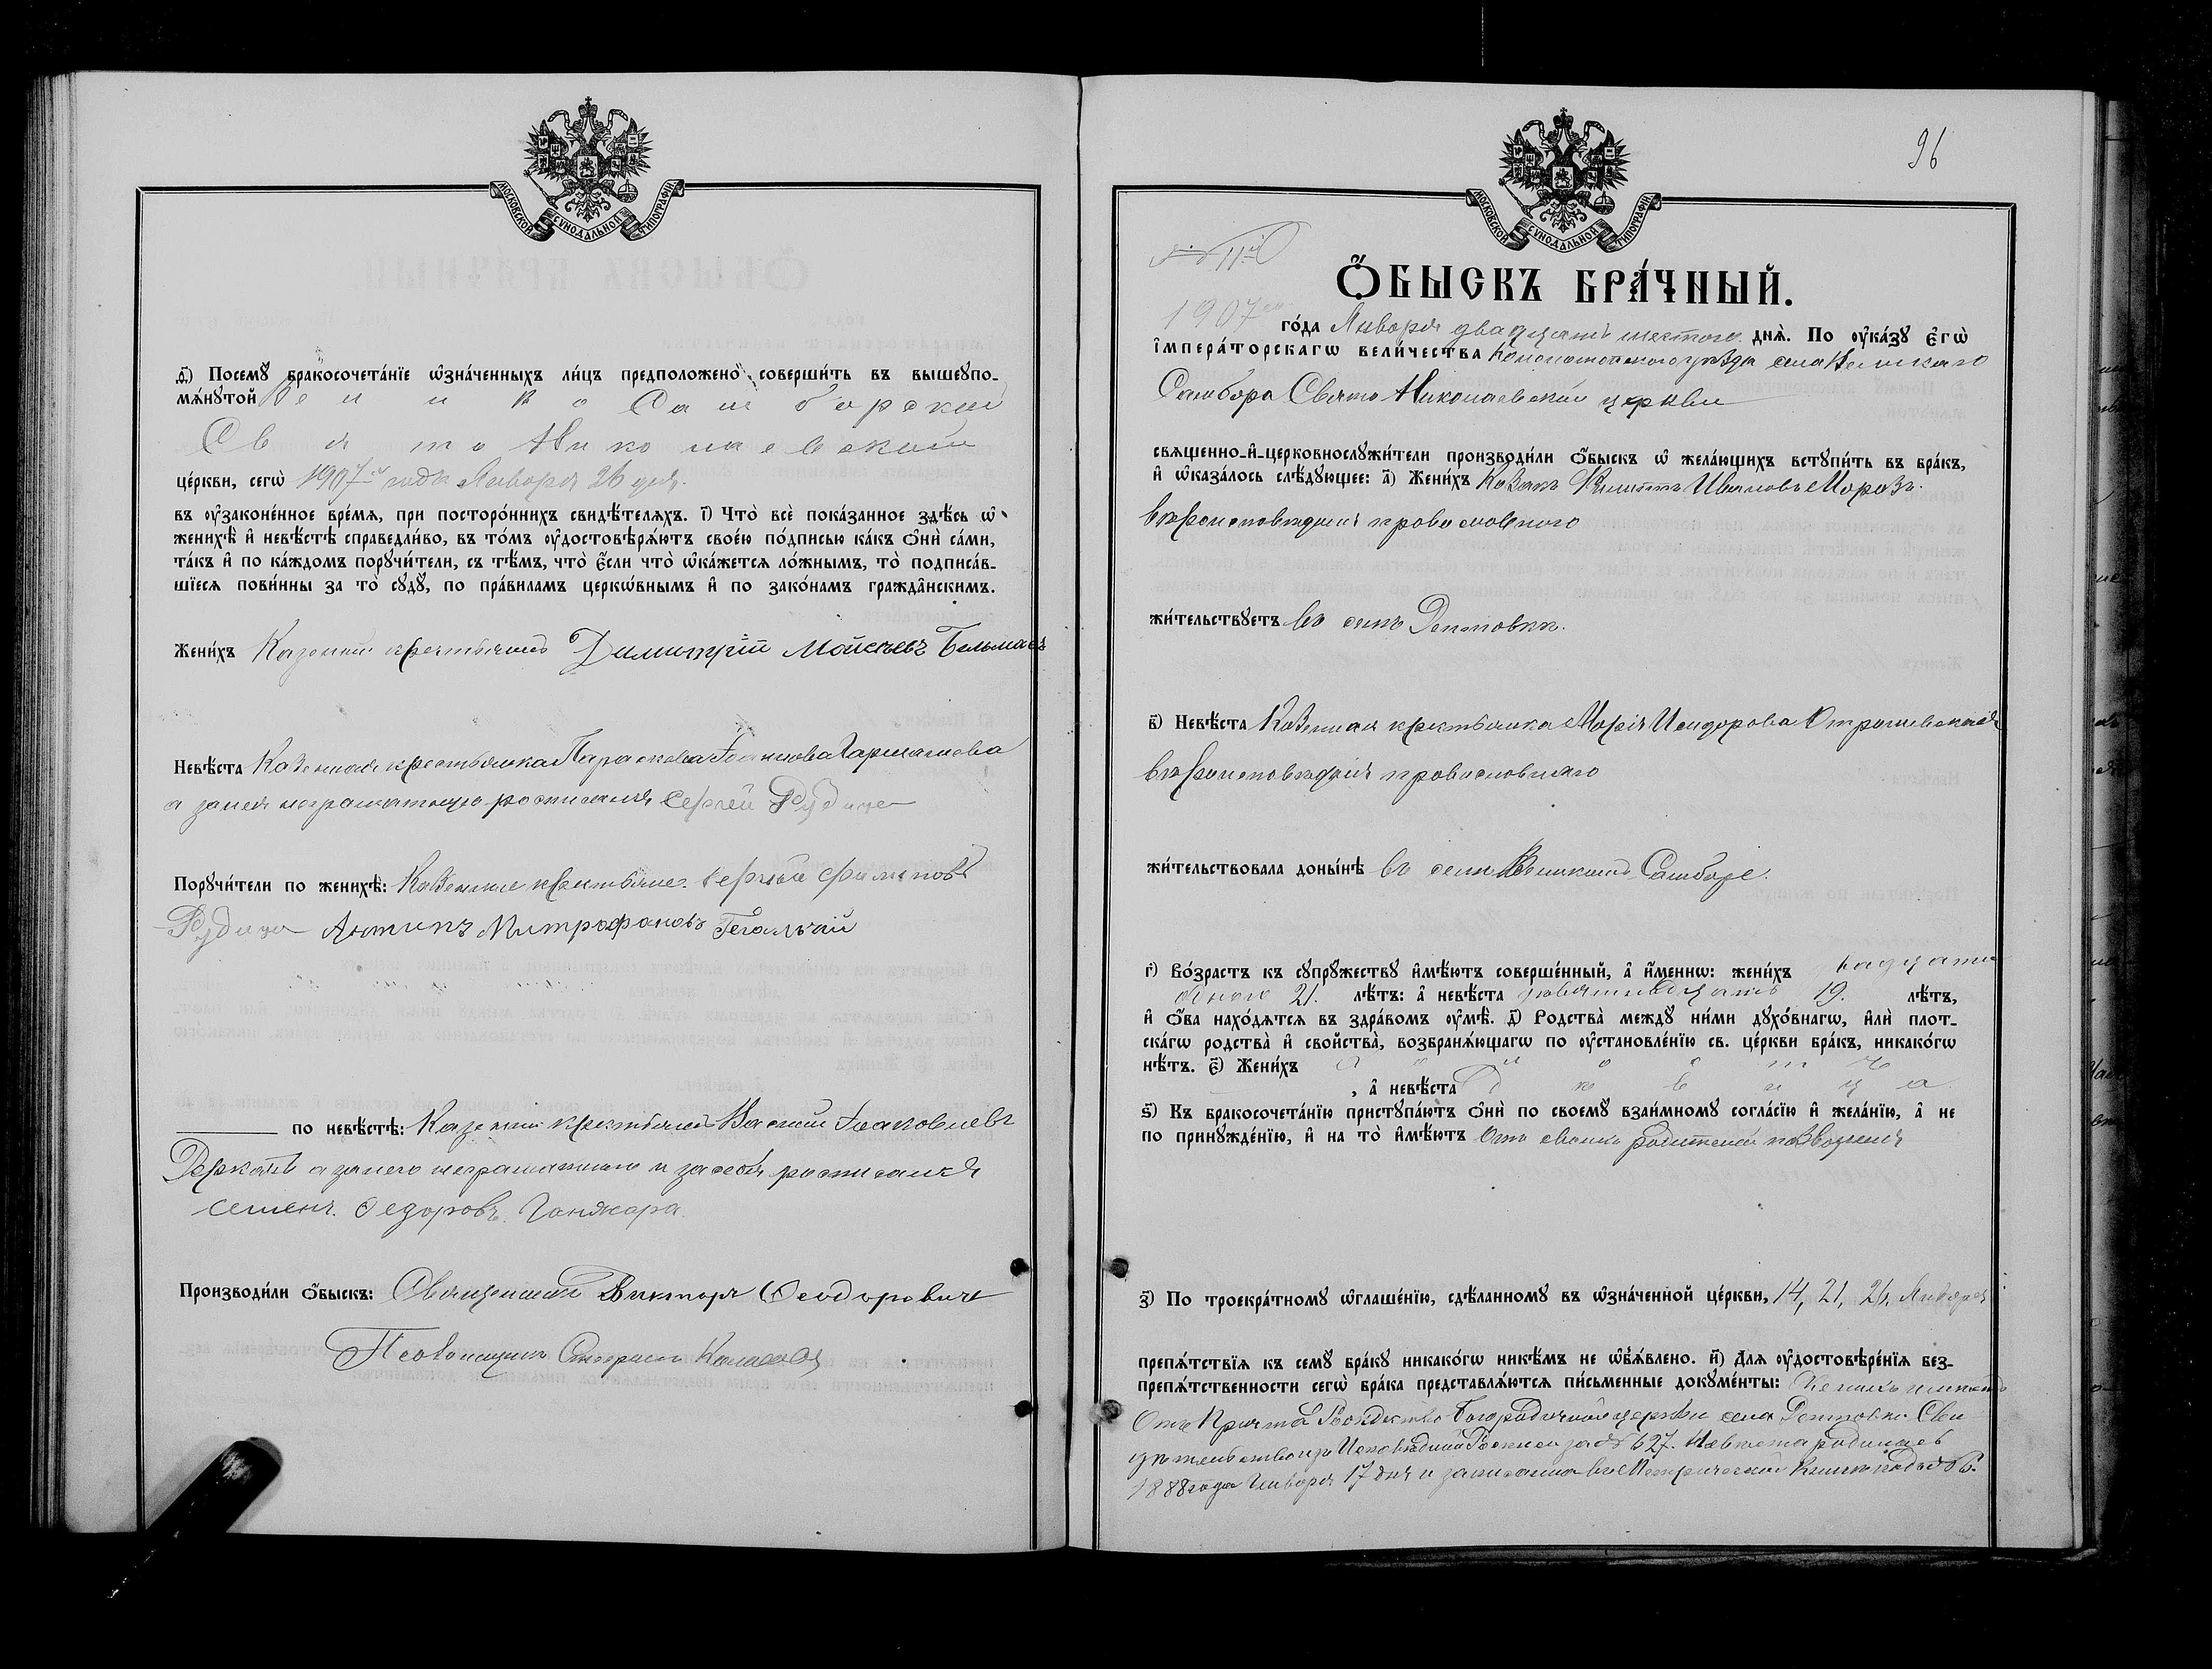 МОСКОВСКОЙ СѴНОДАЛЬНОЙ ТИПОГРАФІИ
д҃) Посемꙋ̀ бракосочета́нїе ѡ҆зна́ченныхъ ли́цъ предположено̀ соверши́ть въ вышеꙋпо-
мѧ́нꙋтой Велико Самборской
Свято Николаевской
це́ркви, сегѡ̀ 1907 года Января 26 дня.
въ ᲂу҆законе́нное вре́мѧ, при посторо́ннихъ свидѣ́телѧхъ. і҃) Что̀ всѐ пока́занное здѣ́сь ѡ҆
женихѣ̀ и҆ невѣ́стѣ справедли́во, въ то́мъ ᲂу҆достовѣрѧ́ютъ свое́ю по́дписью ка́къ ѻ҆нѝ са́ми,
та́къ и҆ по ка́ждомъ порꙋчи́тели, съ тѣ́мъ, что̀ є҆́сли что̀ ѡ҆ка́жетсѧ ло́жнымъ, то̀ подписа́в-
шїесѧ пови́нны за то̀ сꙋдꙋ̀, по пра́виламъ церкѡ́внымъ и҆ по зако́намъ гражда̂нскимъ.
Жени́хъ Казенный крестьянинъ Димитрій Мойсеевъ Бельмасъ
Невѣ́ста Казенная крестьянка Параскева
а за нея неграмотную росписался Сергей Рудица
Порꙋчи́тели по женихѣ̀: Казенные крестьяне: Сергей Филиповъ
Рудица Антипъ Митрофановъ
по невѣ́стѣ: Казенный крестьянинъ Василий
Деркачъ а за него неграмотного и за себя росписался
Семенъ Федоровъ Ганжара
Производи́ли ѻ҆́быскъ: Священникъ Викторъ Феодоровичъ
Псаломщикъ
96
МОСКОВСКОЙ СѴНОДАЛЬНОЙ ТИПОГРАФІИ
№ 11й
Ѻ҆́БЫСКЪ БРА́ЧНЫЙ.
1907го го́да Января двадцать шестого днѧ̀. По ᲂу҆ка́зꙋ є҆гѡ̀
і҆мпера́торскагѡ вели́чества Конотопского уѣзда села Великаго
Самбора Свято Николаевской церкви
свѧщенно-и҆-церковнослꙋжи́тели производи́ли ѻ҆́быскъ ѡ҆ жела́ющихъ встꙋпи́ть въ бра́къ,
и҆ ѡ҆каза́лось слѣ́дꙋющее: а҃) Жени́хъ Казакъ Ивановъ Морозъ
вѣроисповѣданія православного
жи́тельствꙋетъ въ селѣ Дептовкѣ.
в҃) Невѣ́ста Казенная крестьянка Марія Исидорова
вѣроисповѣданія православного
жи́тельствовала доны́нѣ въ селѣ Великомъ Самборѣ.
г҃) Во́зрастъ къ сꙋпрꙋ́жествꙋ и҆мѣ́ютъ соверше́нный, а҆ и҆́меннѡ: жени́хъ
21. лѣ́тъ: а҆ невѣ́ста девятнадцать 19. лѣ́тъ,
и҆ ѻ҆́ба нахо́дѧтсѧ въ здра́вомъ ᲂу҆мѣ̀. д҃) Родства̀ междꙋ̀ ни́ми дꙋхо́внагѡ, и҆лѝ плот-
ска́гѡ родства̀ и҆ свойства̀, возбранѧ́ющагѡ по ᲂу҆становле́нїю св. це́ркви бра́къ, никако́гѡ
нѣ́тъ. є҃) Жени́хъ холостъ
, а҆ невѣ́ста дѣвица
ѕ҃) Къ бракосочета́нїю пристꙋпа́ютъ ѻ҆нѝ по своемꙋ̀ взаи́мномꙋ согла́сїю и҆ жела́нїю, а҆ не
по принꙋжде́нїю, и҆ на то̀ и҆мѣ́ютъ отъ своихъ родителей позволенія
з҃) По троекра́тномꙋ ѡ҆глаше́нїю, сдѣ́ланномꙋ въ ѡ҆зна́ченной це́ркви, 14, 21, 26, Января
препѧ́тствїѧ къ семꙋ̀ бра́кꙋ никако́гѡ никѣ́мъ не ѡ҆б̾ѧ́влено. и҃) Длѧ ᲂу҆достовѣре́нїѧ без-
препѧ́тственности сегѡ̀ бра́ка представлѧ́ютсѧ пи́сьменные докꙋме́нты:
Отъ Причта Рождество-Богородичной церкви села Дептовки Сви-
дѣтельство за № 627. Невѣста родилась
1888 года Января 17 дня и записана въ Метрической книгѣ подъ № 6.